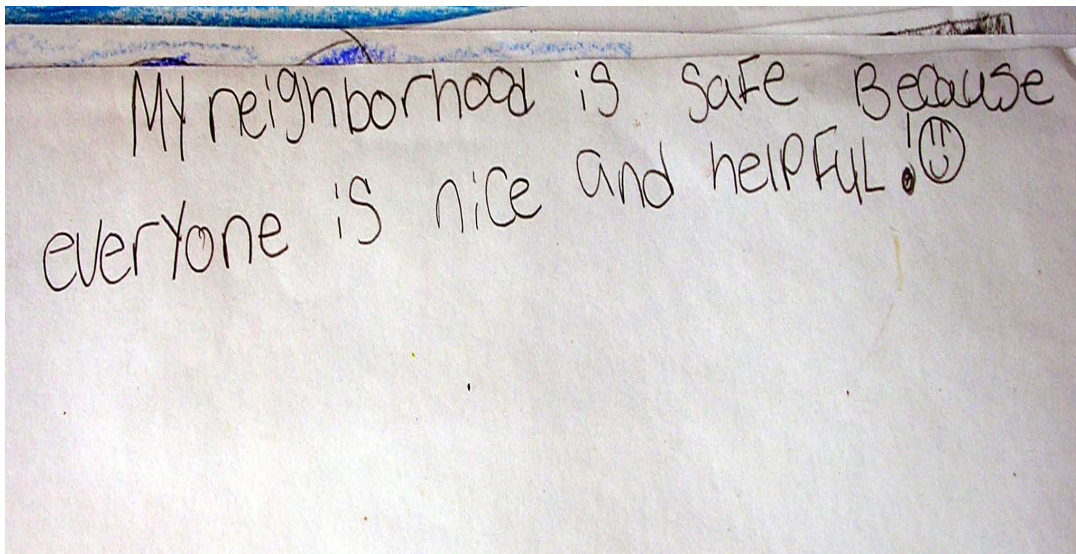 My neighborhood is safe Because
everyone is nice and helpful!☺